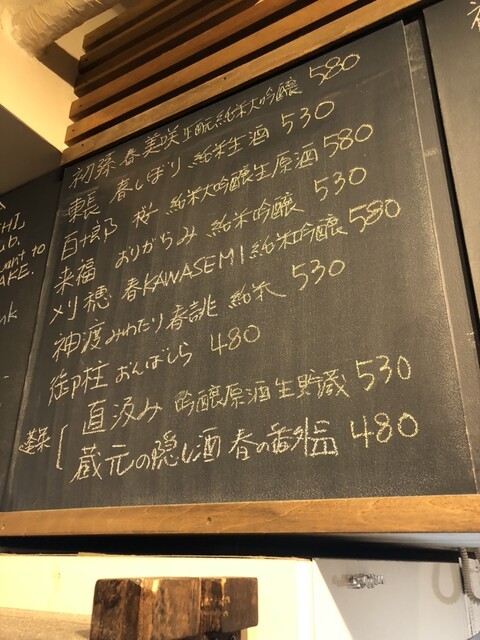 初孫 春美咲 生酛純米大吟醸 580
東長 春しぼり 純米生酒 530
百十郎 桜 純米大吟醸生原酒 580
来福 おりがらみ 純米吟醸 530
刈穂 春KAWASEMI 純米吟醸 580
神渡 みわたり 春誂 純米 530
御柱 おんばしら 480
蓬莱
直汲み 吟醸原酒生貯蔵 530
蔵元の隠し酒 春の番外品 480
HI,
ub.
want to
AKE.
nk